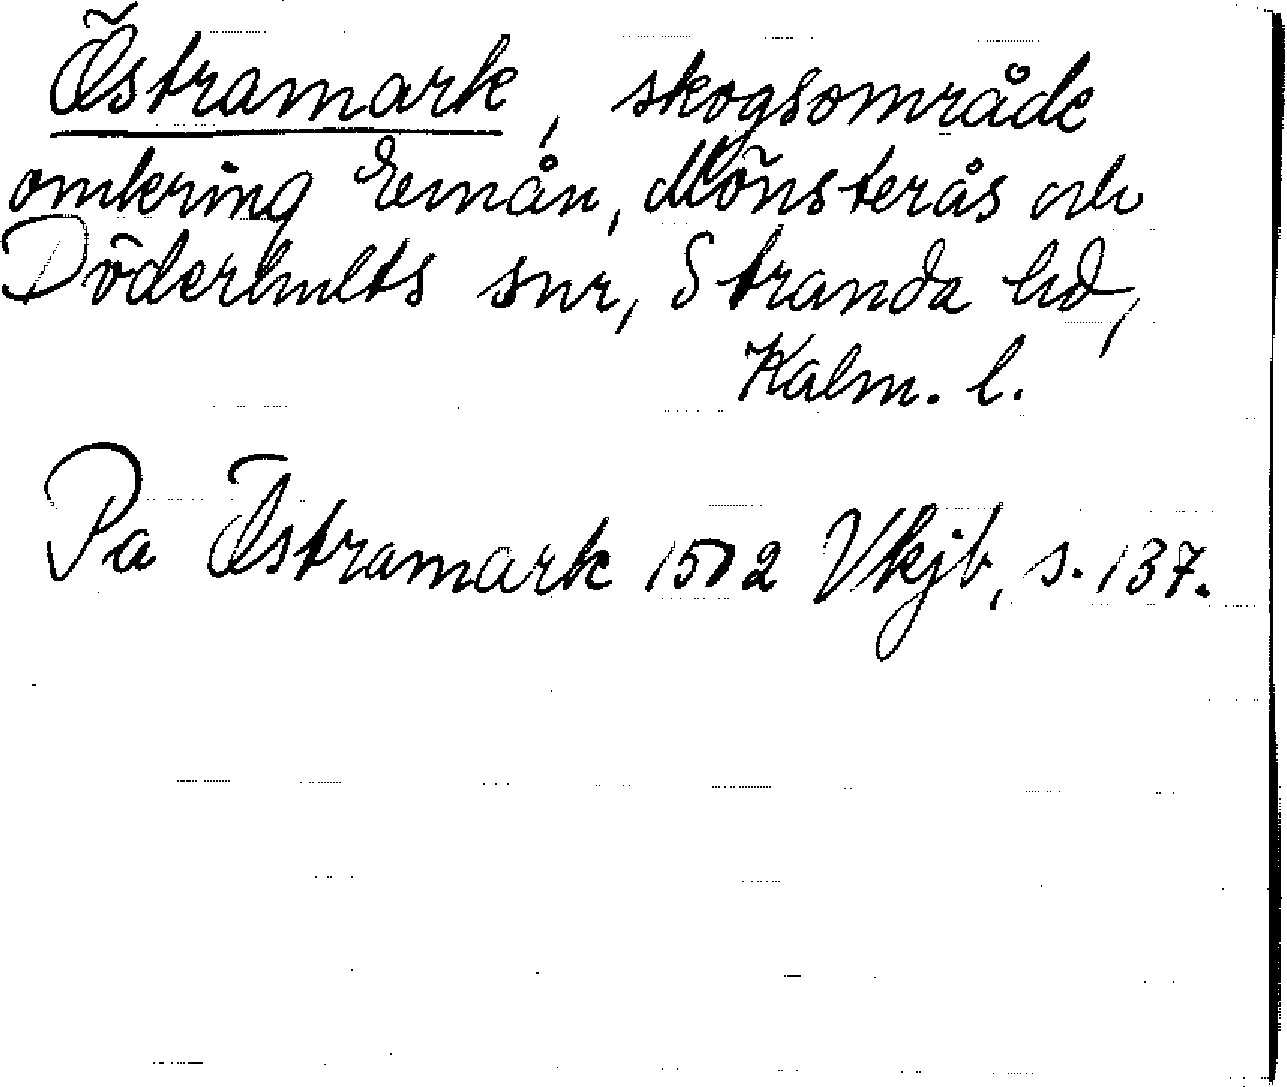 Östramark, skogsområde
omkring Emån, Mönsterås och
Döderhults snr, Stranda hd,
Kalm. l.
Pa Östramark 1572 Vkjb, s. 137.